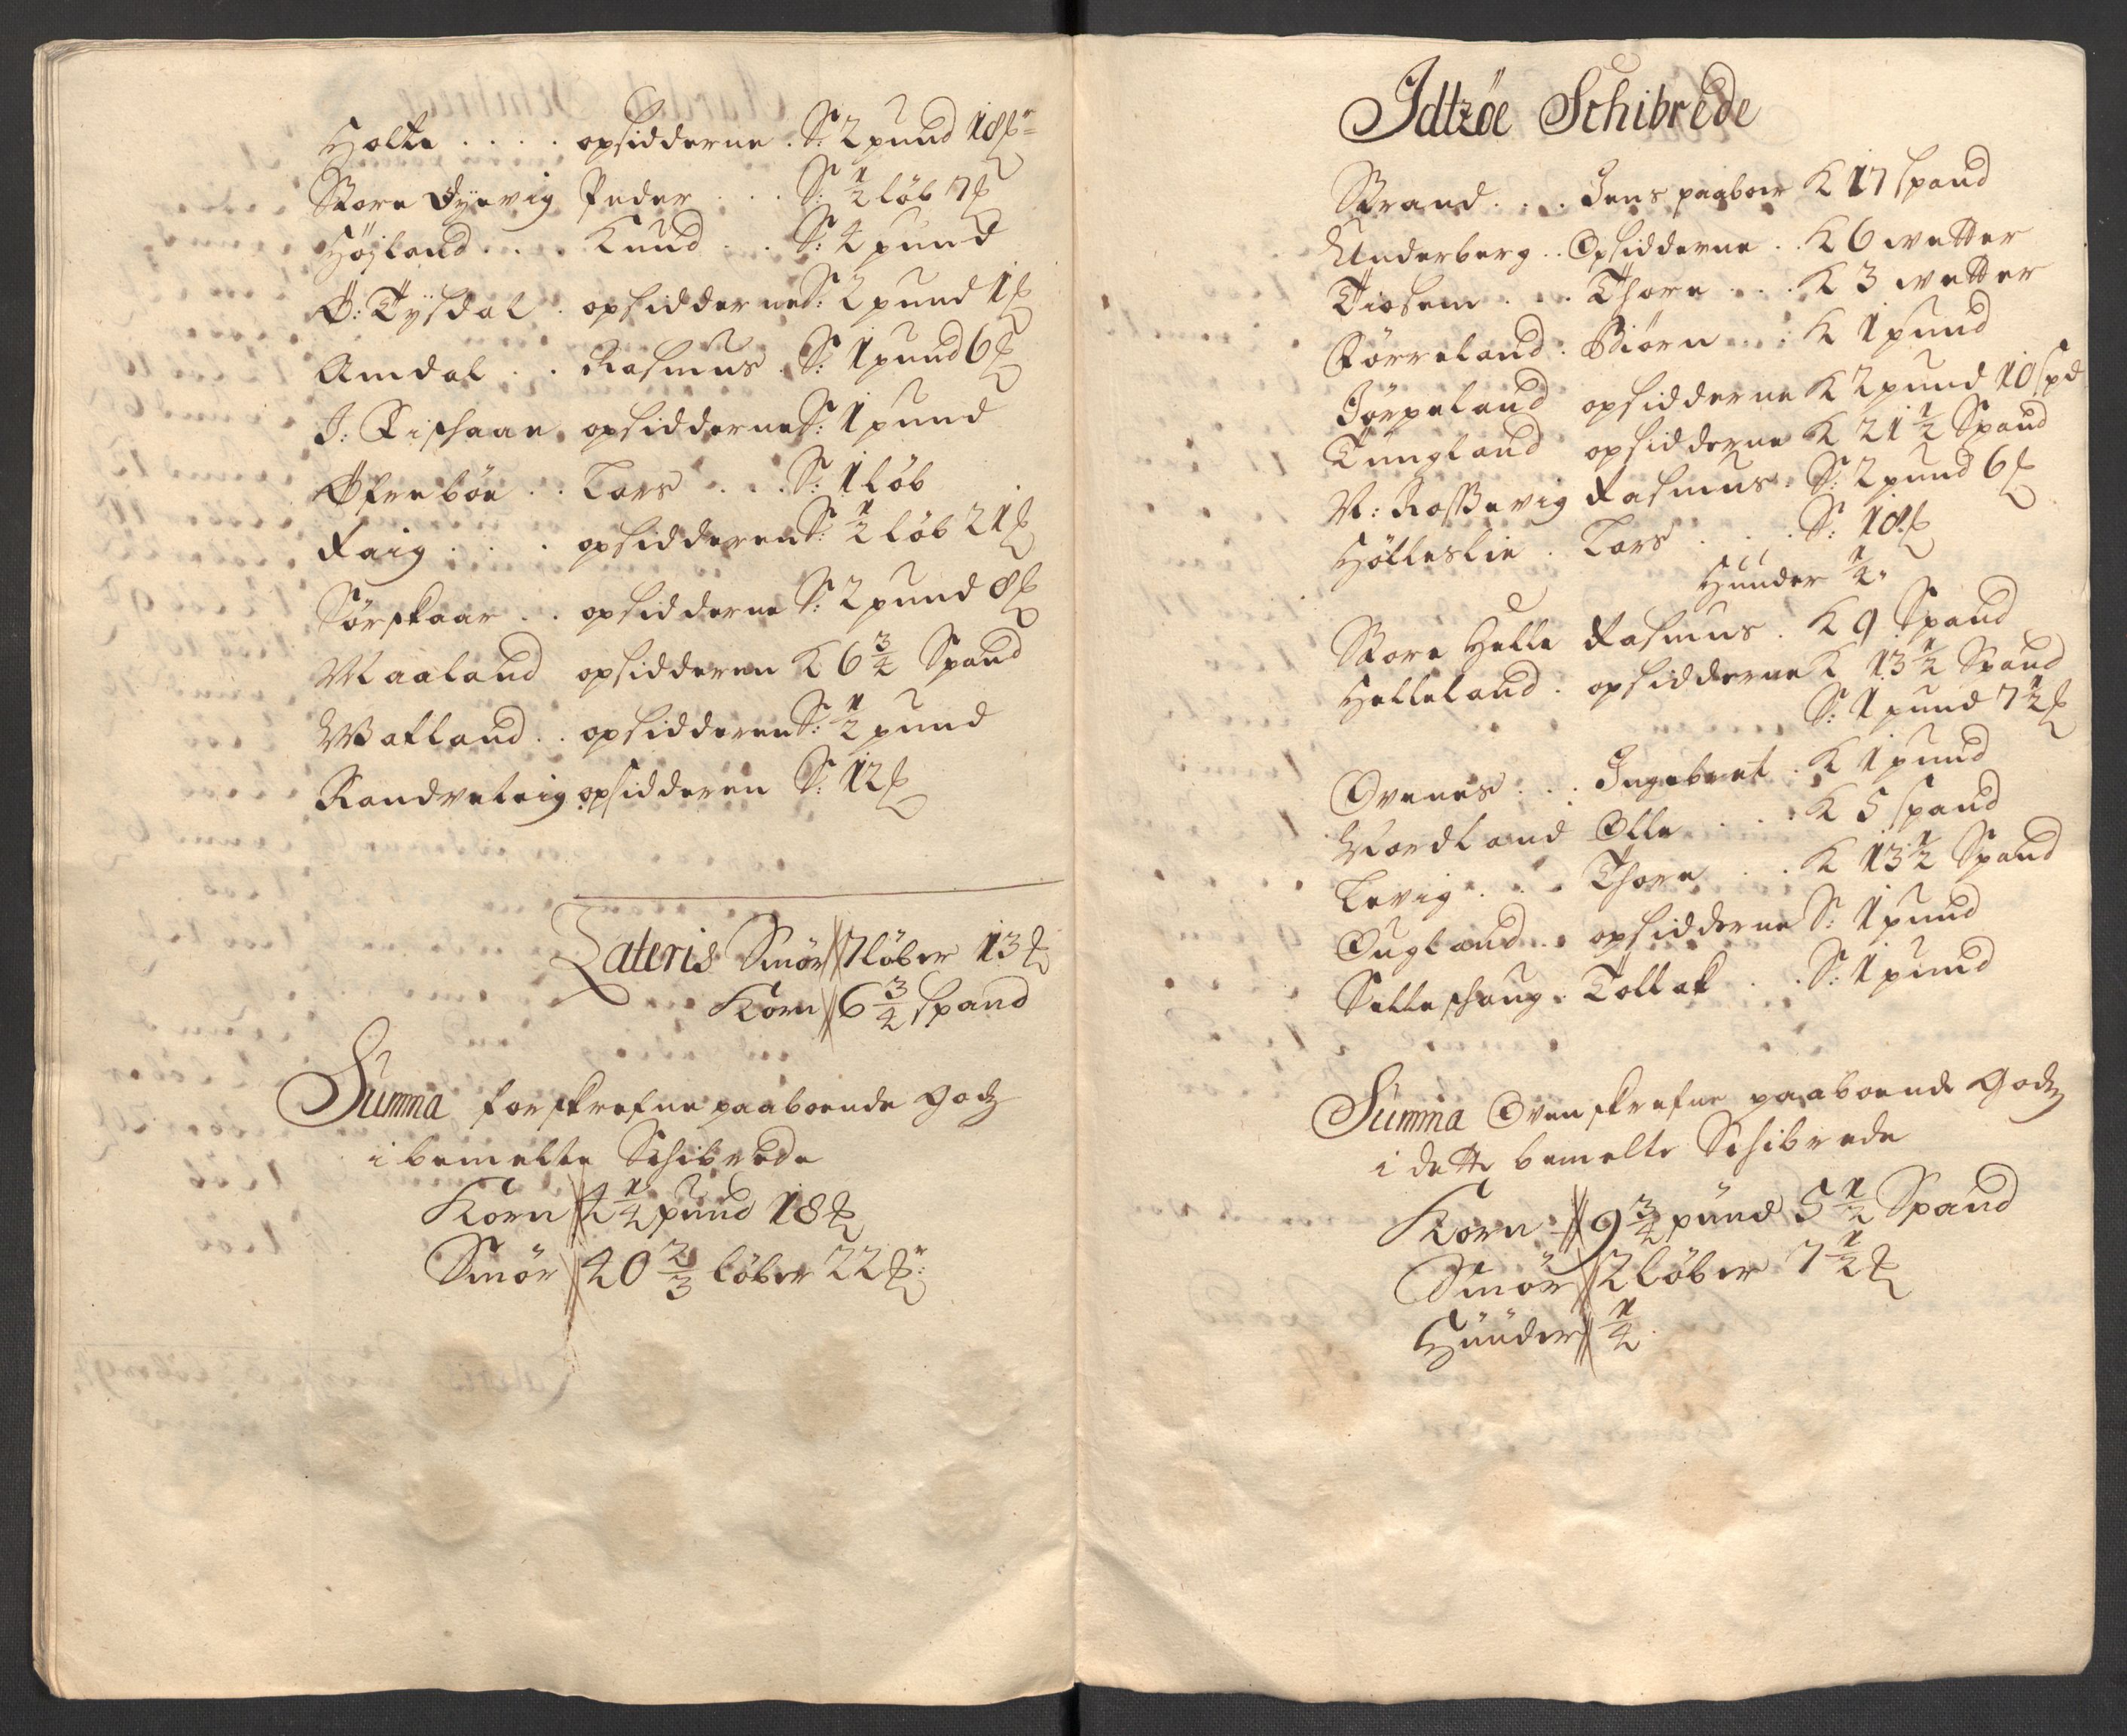 Holte . . . . opsidderne . S: 2 pund 18 ℔r
Store Dyevig Peder . . . S: 1/2 löb 7 ℔
Höjland . . . Knud . . S: 4 pund
Ö: Tÿsdal . opsidderne S: 2 pund 1 ℔
Amdal . . Rasmus . S: 1 pund 6 ℔
J: Fischaae opsidderne S: 1 pund
Öfreböe . . Lars . . . S: 1 löb
Faig . . . opsidderen S: 1/2 löb 21 ℔
Sörskaar . . opsidderne S: 2 pund 8 ℔
Maaland opsidderen K 6 3/4 Spand
Watland . . opsidderen S: 1/2 pund
Randveteig opsidderen S: 12 ℔
Lateris Smör 7 löber 13 ℔
Korn 6 3/4 spand
Summa forskrefne paaboende godz
i bemelte Schibrede
Korn 4 1/4 pund 18 ℔
Smör 40 2/3 löber 22 ℔r:
Idtzöe Schibrede
Strand . . . Jens paaboer K 17 spand
Underberg . . Opsidderne . . K 6 wetter
Tiosem . . . Thore . . . K 3 wetter
Förreland . Biörn . . : K 1 pund
Jörpeland opsidderne K 2 pund 10 spd
Tungland opsidderne K 21 1/2 Spand
N: Roßevig Rasmus . S: 2 pund 6 ℔
Hölleslie . Lars . . . S: 18 ℔
Huuder 1/4 .
Store Helle Rasmus . K 9 Spand
Helleland . opsidderne K 13 1/2 Spand
S: 1 pund 7 1/2 ℔
Ovenes . . . Ingebret . K 1 pund
Nordland Olle . . . K 5 spand
Levig . . . Thore . . K 13 1/2 Spand
Eugland . . opsidderne S: 1 pund
Selleshaug . Tollak . . S: 1 pund
Summa Ovenskrefne paaboende godz
i dette bemelte Schibrede
Korn 9 3/4 pund 5 1/2 Spand
Smör 2 löber 7 1/2 ℔
Huuder 1/4 .